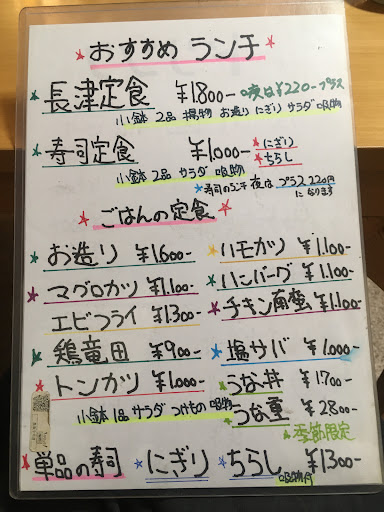 おすすめ ランチ
長津定食 ¥1.800- 夜は¥220-プラス
小鉢 2品 揚物 お造り にぎり サラダ 吸物
寿司定食 ¥1.000- にぎり
ちらし
小鉢 2品 サラダ 吸物
寿司のランチ 夜は プラス220円
になります
ごはんの定食
お造り ¥1.600-
マグロカツ ¥1.100-
エビフライ ¥1.300-
鶏竜田 ¥900-
トンカツ ¥1.000-
小鉢 1品 サラダ つけもの 吸物
ハモカツ ¥1.100-
ハンバーグ ¥1.100-
チキン南蛮 ¥1.100-
塩サバ ¥1.000-
うな丼 ¥1.700-
うな重 ¥2800-
季節限定
単品の寿司 にぎり ちらし ¥1300-
吸物付